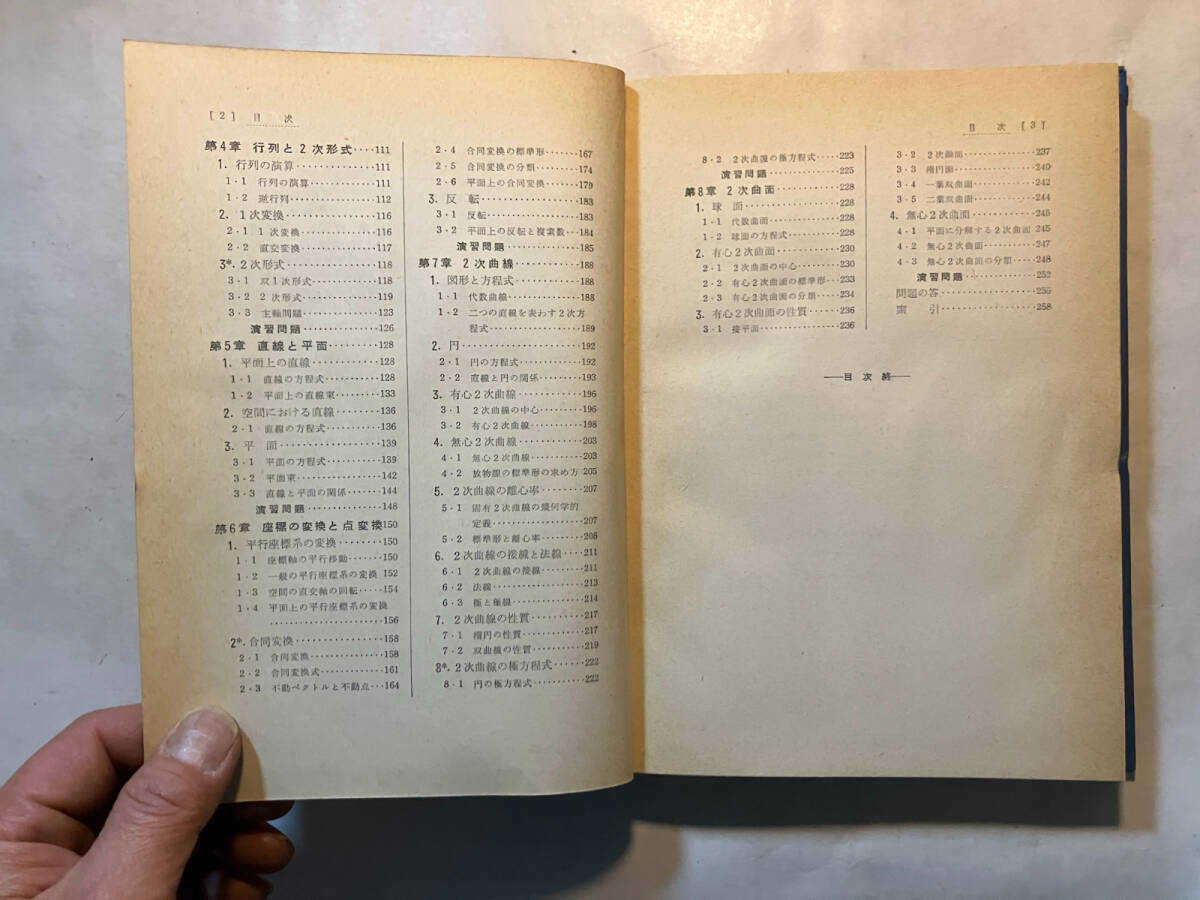 [2] 目 次
第4章 行列と2次形式····111
1. 行列の演算·············111
1·1 行列の演算············111
1·2 逆行列················112
2. 1次変換················116
2·1 1次変換··············116
2·2 直交変換·············117
3*. 2次形式···············118
3·1 双1次形式············118
3·2 2次形式··············119
3·3 主軸問題·············123
演習問題················126
第5章 直線と平面········128
1. 平面上の直線···········128
1·1 直線の方程式··········128
1·2 平面上の直線束········133
2. 空間における直線·······136
2·1 直線の方程式··········136
3. 平 面·················139
3·1 平面の方程式··········139
3·2 平面束················142
3·3 直線と平面の関係······144
演習問題················148
第6章 座標の変換と点変換150
1. 平行座標系の変換·······150
1·1 座標軸の平行移動·····150
1·2 一般の平行座標系の変換 152
1·3 空間の直交軸の回転····154
1·4 平面上の平行座標系の変換
·························156
2*. 合同変換··············158
2·1 合同変換·············158
2·2 合同変換式···········161
2·3 不動ベクトルと不動点···164
2·4 合同変換の標準形·······167
2·5 合同変換の分類········174
2·6 平面上の合同変換······179
3. 反 転·················183
3·1 反転·················183
3·2 平面上の反転と複素数··184
演習問題················185
第7章 2次曲線··········188
1. 図形と方程式··········188
1·1 代数曲線·············188
1·2 二つの直線を表わす2次方
程式··················189
2. 円····················192
2·1 円の方程式···········192
2·2 直線と円の関係·······193
3. 有心2次曲線··········196
3·1 2次曲線の中心·······196
3·2 有心2次曲線·········198
4. 無心2次曲線··········203
4·1 無心2次曲線·········203
4·2 放物線の標準形の求め方 205
5. 2次曲線の離心率·······207
5·1 固有2次曲線の幾何学的
定義··················207
5·2 標準形と離心率·······208
6. 2次曲線の接線と法線····211
6·1 2次曲線の接線·······211
6·2 法線·················213
6·3 極と極線·············214
7. 2次曲線の性質·········217
7·1 楕円の性質···········217
7·2 双曲線の性質·········219
8*. 2次曲線の極方程式·····222
8·1 円の極方程式·········222
目 次 [3]
8·2 2次曲線の極方程式·····223
演習問題················225
第8章 2次曲面··········228
1. 球 面·················228
1·1 代数曲面·············228
1·2 球面の方程式·········228
2. 有心2次曲面··········230
2·1 2次曲面の中心·······230
2·2 有心2次曲面の標準形··233
2·3 有心2次曲面の分類····234
3. 有心2次曲面の性質·····236
3·1 接平面···············236
3·2 2次錐面·············237
3·3 楕円面···············240
3·4 一葉双曲面···········242
3·5 二葉双曲面···········244
4. 無心2次曲面··········245
4·1 平面に分解する2次曲面 245
4·2 無心2次曲面·········247
4·3 無心2次曲面の分類····248
演習問題················252
問題の答················255
索 引··················258
——目 次 終——